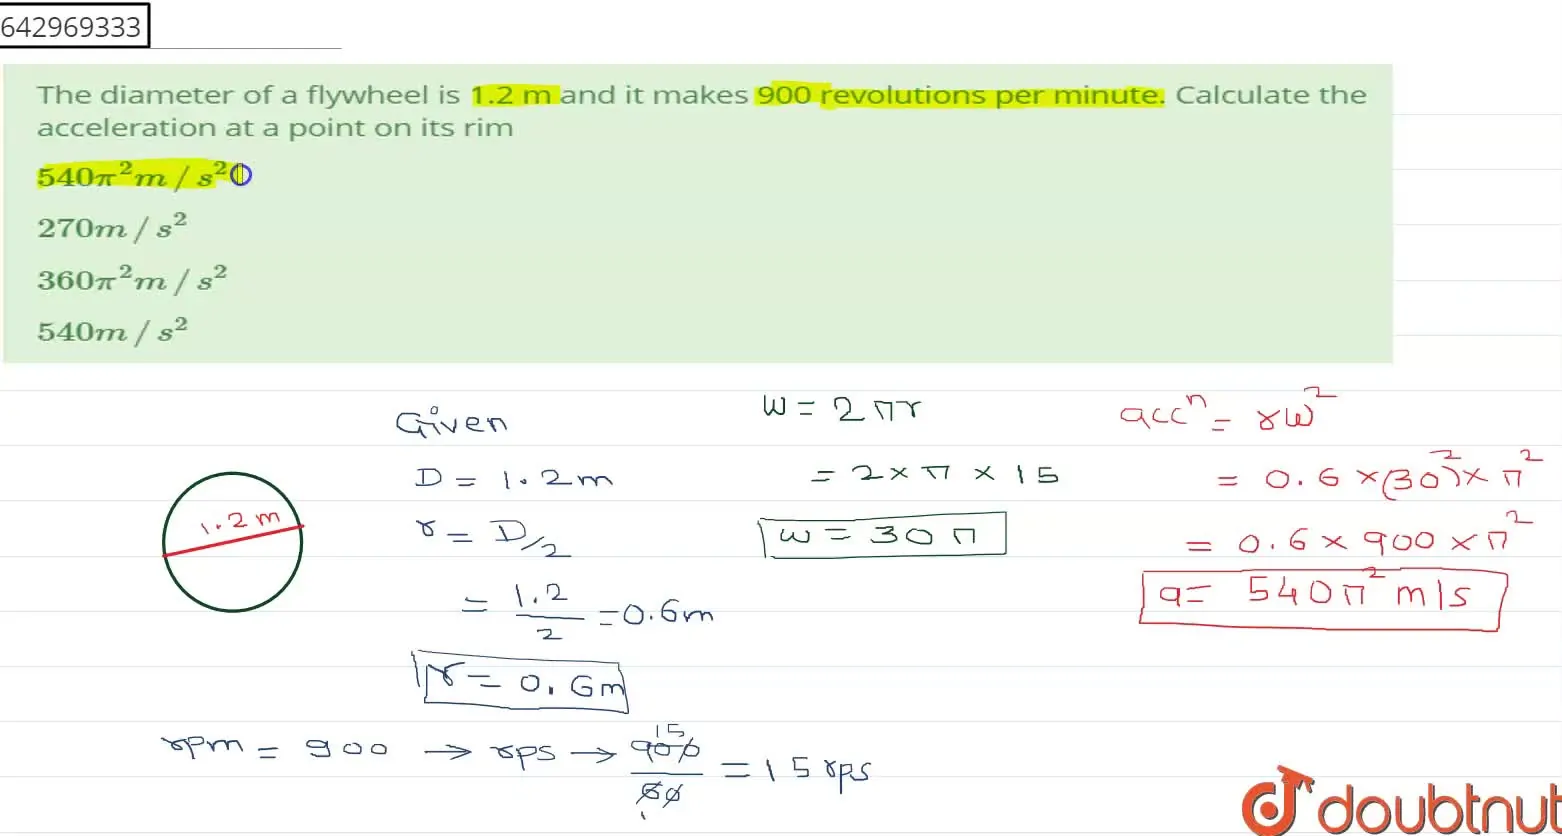 642969333
The diameter of a flywheel is 1.2 m and it makes 900 revolutions per minute. Calculate the
acceleration at a point on its rim
540π²m / s²
270m / s²
360π²m / s²
540m / s²
Given
D = 1.2m
r = D/2
= 1.2/2 = 0.6m
r = 0.6m
1.2m
rpm = 900 → rps → 900/60 = 15 rps
15
1
w = 2πr
= 2 × π × 15
w = 30π
accⁿ = rw²
= 0.6 × (30)² × π²
= 0.6 × 900 × π²
a = 540π² m/s
doubtnut